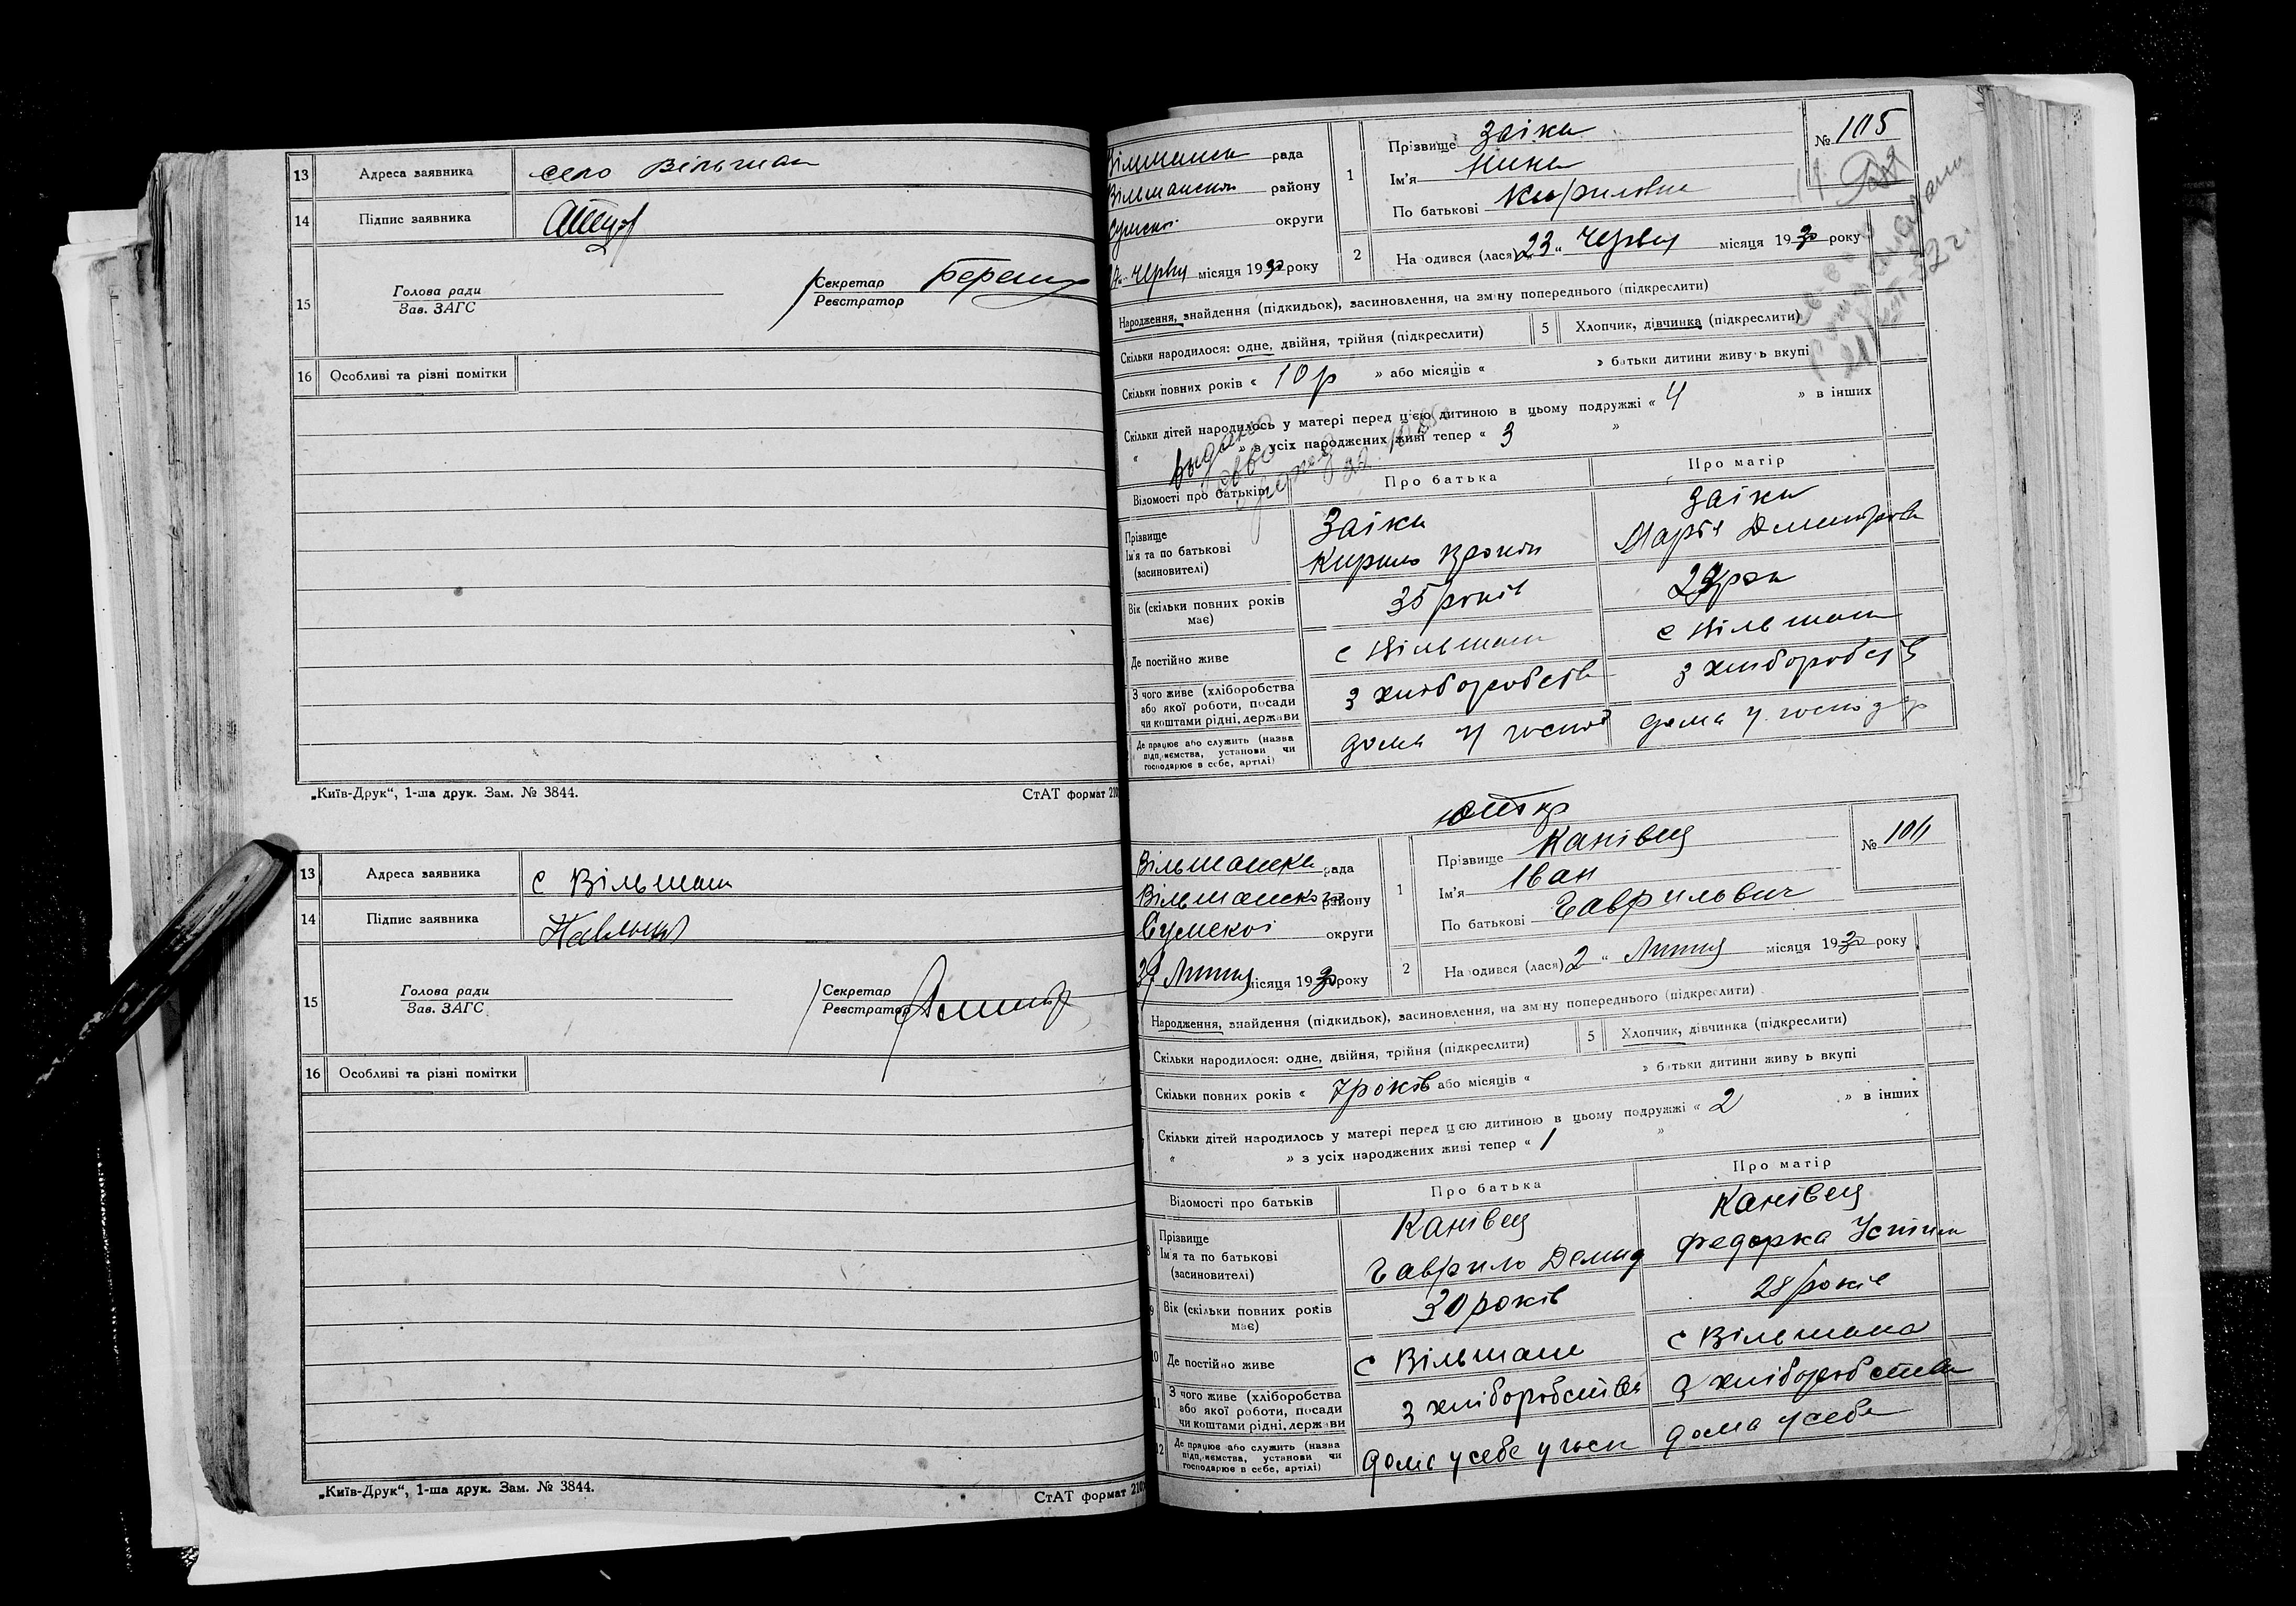 13 Адреса заявника село Вільшан
14 Підпис заявника
15 Голова ради
Зав. ЗАГС
Секретар
Реєстратор
16 Особливі та різні помітки
„Київ-Друк“, 1-ша друк. Зам. № 3844.
СтАТ формат 210
13 Адреса заявника с Вільшани
14 Підпис заявника
15 Голова ради
Зав. ЗАГС
Секретар
Реєстратор
16 Особливі та різні помітки
„Київ-Друк“, 1-ша друк. Зам. № 3844.
СтАТ формат 210
рада
району
Сумскої округи
місяця 1930 року
1 Прізвище Заіка
Ім'я Нина
По батькові Кириловна
№ 105
2 На одився (лася) 23 „ Червня місяця 1930 року
Народження, знайдення (підкидьок), засиновлення, на зміну попереднього (підкреслити)
Скільки народилося: одне, двійня, трійня (підкреслити) 5 Хлопчик, дівчинка (підкреслити)
Скільки повних років « 10 р » або місяців « » батьки дитини живуть вкупі
Скільки дітей народилось у матері перед цією дитиною в цьому подружжі « 4 » в інших
« » з усіх народжених живі тепер « 3 »
Відомості про батьків Про батька Про матір
Прізвище
Ім'я та по батькові
(засиновителі)
Заіка Заіка
Кирило Марія
Вік (скільки повних років має) 35 років
Де постійно живе с Вільшани с Вільшани
З чого живе (хліборобства
або якої роботи, посади
чи коштами рідні, держави
З хліборобств З хліборобств
Де працює або служить (назва
підприємства, установи чи
господарює в себе, артілі)
дома у господ дома у господар
Вільшанска рада
Вільшанского району
Сумскої округи
Липня місяця 1930 року
1 Прізвище Канівец
Ім'я Іван
По батькові Гаврилович
№ 106
2 Народився (лася) 2 „ Липня місяця 1930 року
Народження, знайдення (підкидьок), засиновлення, на зміну попереднього (підкреслити)
Скільки народилося: одне, двійня, трійня (підкреслити) 5 Хлопчик, дівчинка (підкреслити)
Скільки повних років « 7 років або місяців « » батьки дитини живу ь вкупі
Скільки дітей народилось у матері перед цією дитиною в цьому подружжі « 2 » в інших
« » з усіх народжених живі тепер « 1 »
Відомості про батьків Про батька Про матір
8 Прізвище
Ім'я та по батькові
(засиновителі)
Канівец Канівец
Гаврило Демид Федорка Устим
9 Вік (скільки повних років має) 30 років 28 років
10 Де постійно живе с Вільшани с Вільшана
11 З чого живе (хліборобства
або якої роботи, посади
чи коштами рідні, держави
З хліборобства З хліборобства
12 Де працює або служить (назва
підприємства, установи чи
господарює в себе, артілі)
дома у себе у госп дома у себе